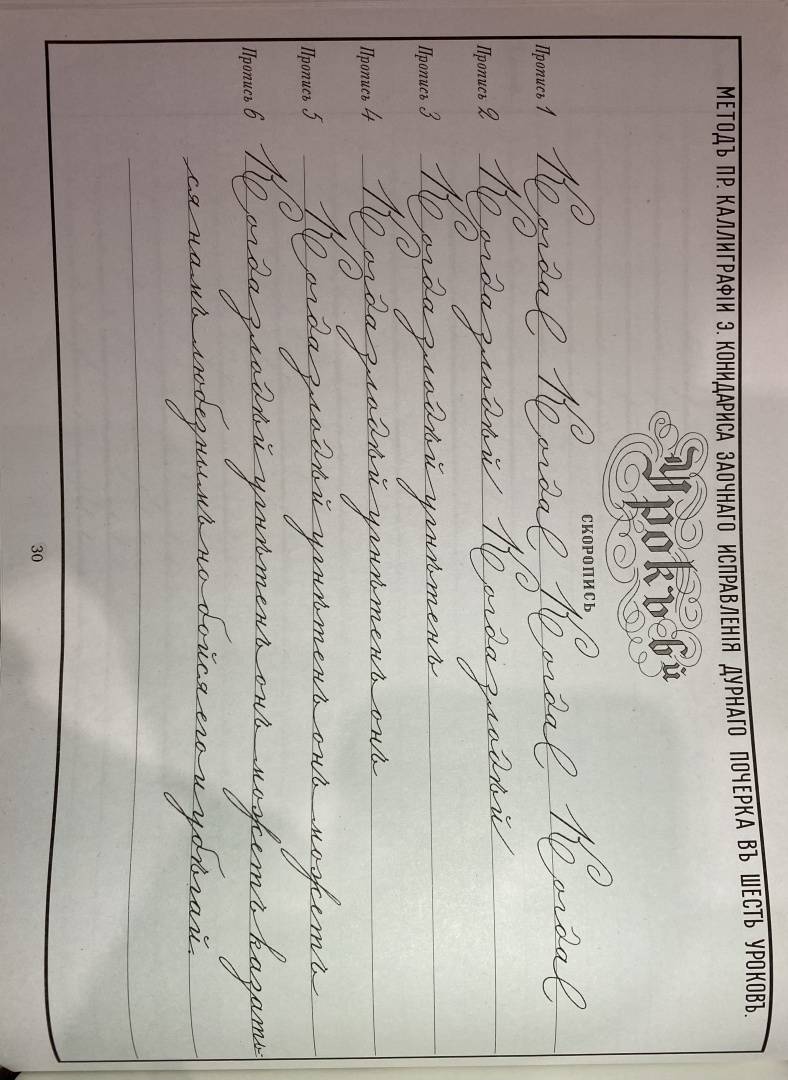 МЕТОДЪ ПР. КАЛЛИГРАФІИ Э. КОНИДАРИСА ЗАОЧНАГО ИСПРАВЛЕНІЯ ДУРНАГО ПОЧЕРКА ВЪ ШЕСТЬ УРОКОВЪ.
Урокъ 6й
СКОРОПИСЬ
Пропись 1 Когда Когда Когда Когда
Пропись 2 Когда злодѣй Когда злодѣй
Пропись 3 Когда злодѣй угнѣтенъ
Пропись 4 Когда злодѣй угнѣтенъ онъ
Пропись 5 Когда злодѣй угнѣтенъ онъ можетъ
Пропись 6 Когда злодѣй угнѣтенъ онъ можетъ казать-
ся намъ любезнымъ но бойся его и убѣгай.
30